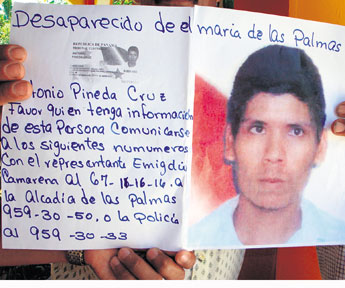 Desaparecido de el maria de las Palmas
REPUBLICA DE PANAMA
tonio Pineda Cruz
Favor quien tenga información
de esta Persona Comunicarse
a los siguientes numumeros
Con el representante Emigdio
Camarena Al 67-16-16-14. a
la Alcadia de las Palmas
959-30-50. o la Policía
al 959-30-33